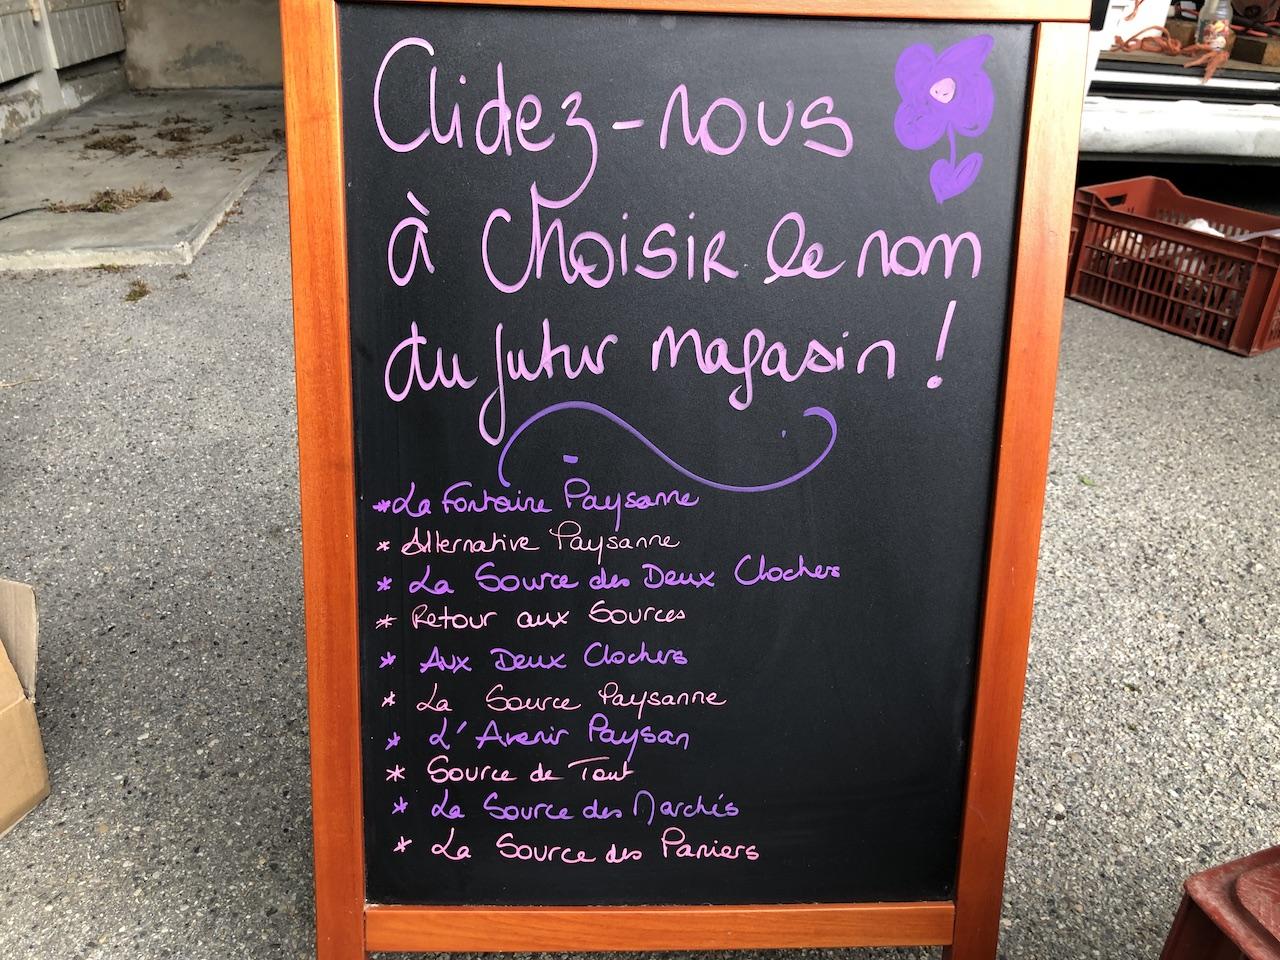 Aidez-nous
à choisir le nom
du futur magasin !
* La Fontaine Paysanne
* Alternative Paysanne
* La Source des Deux Clochers
* Retour aux Sources
* Aux Deux Clochers
* La Source Paysanne
* L'Avenir Paysan
* Source de Tout
* La Source des Marchés
* La Source des Paniers